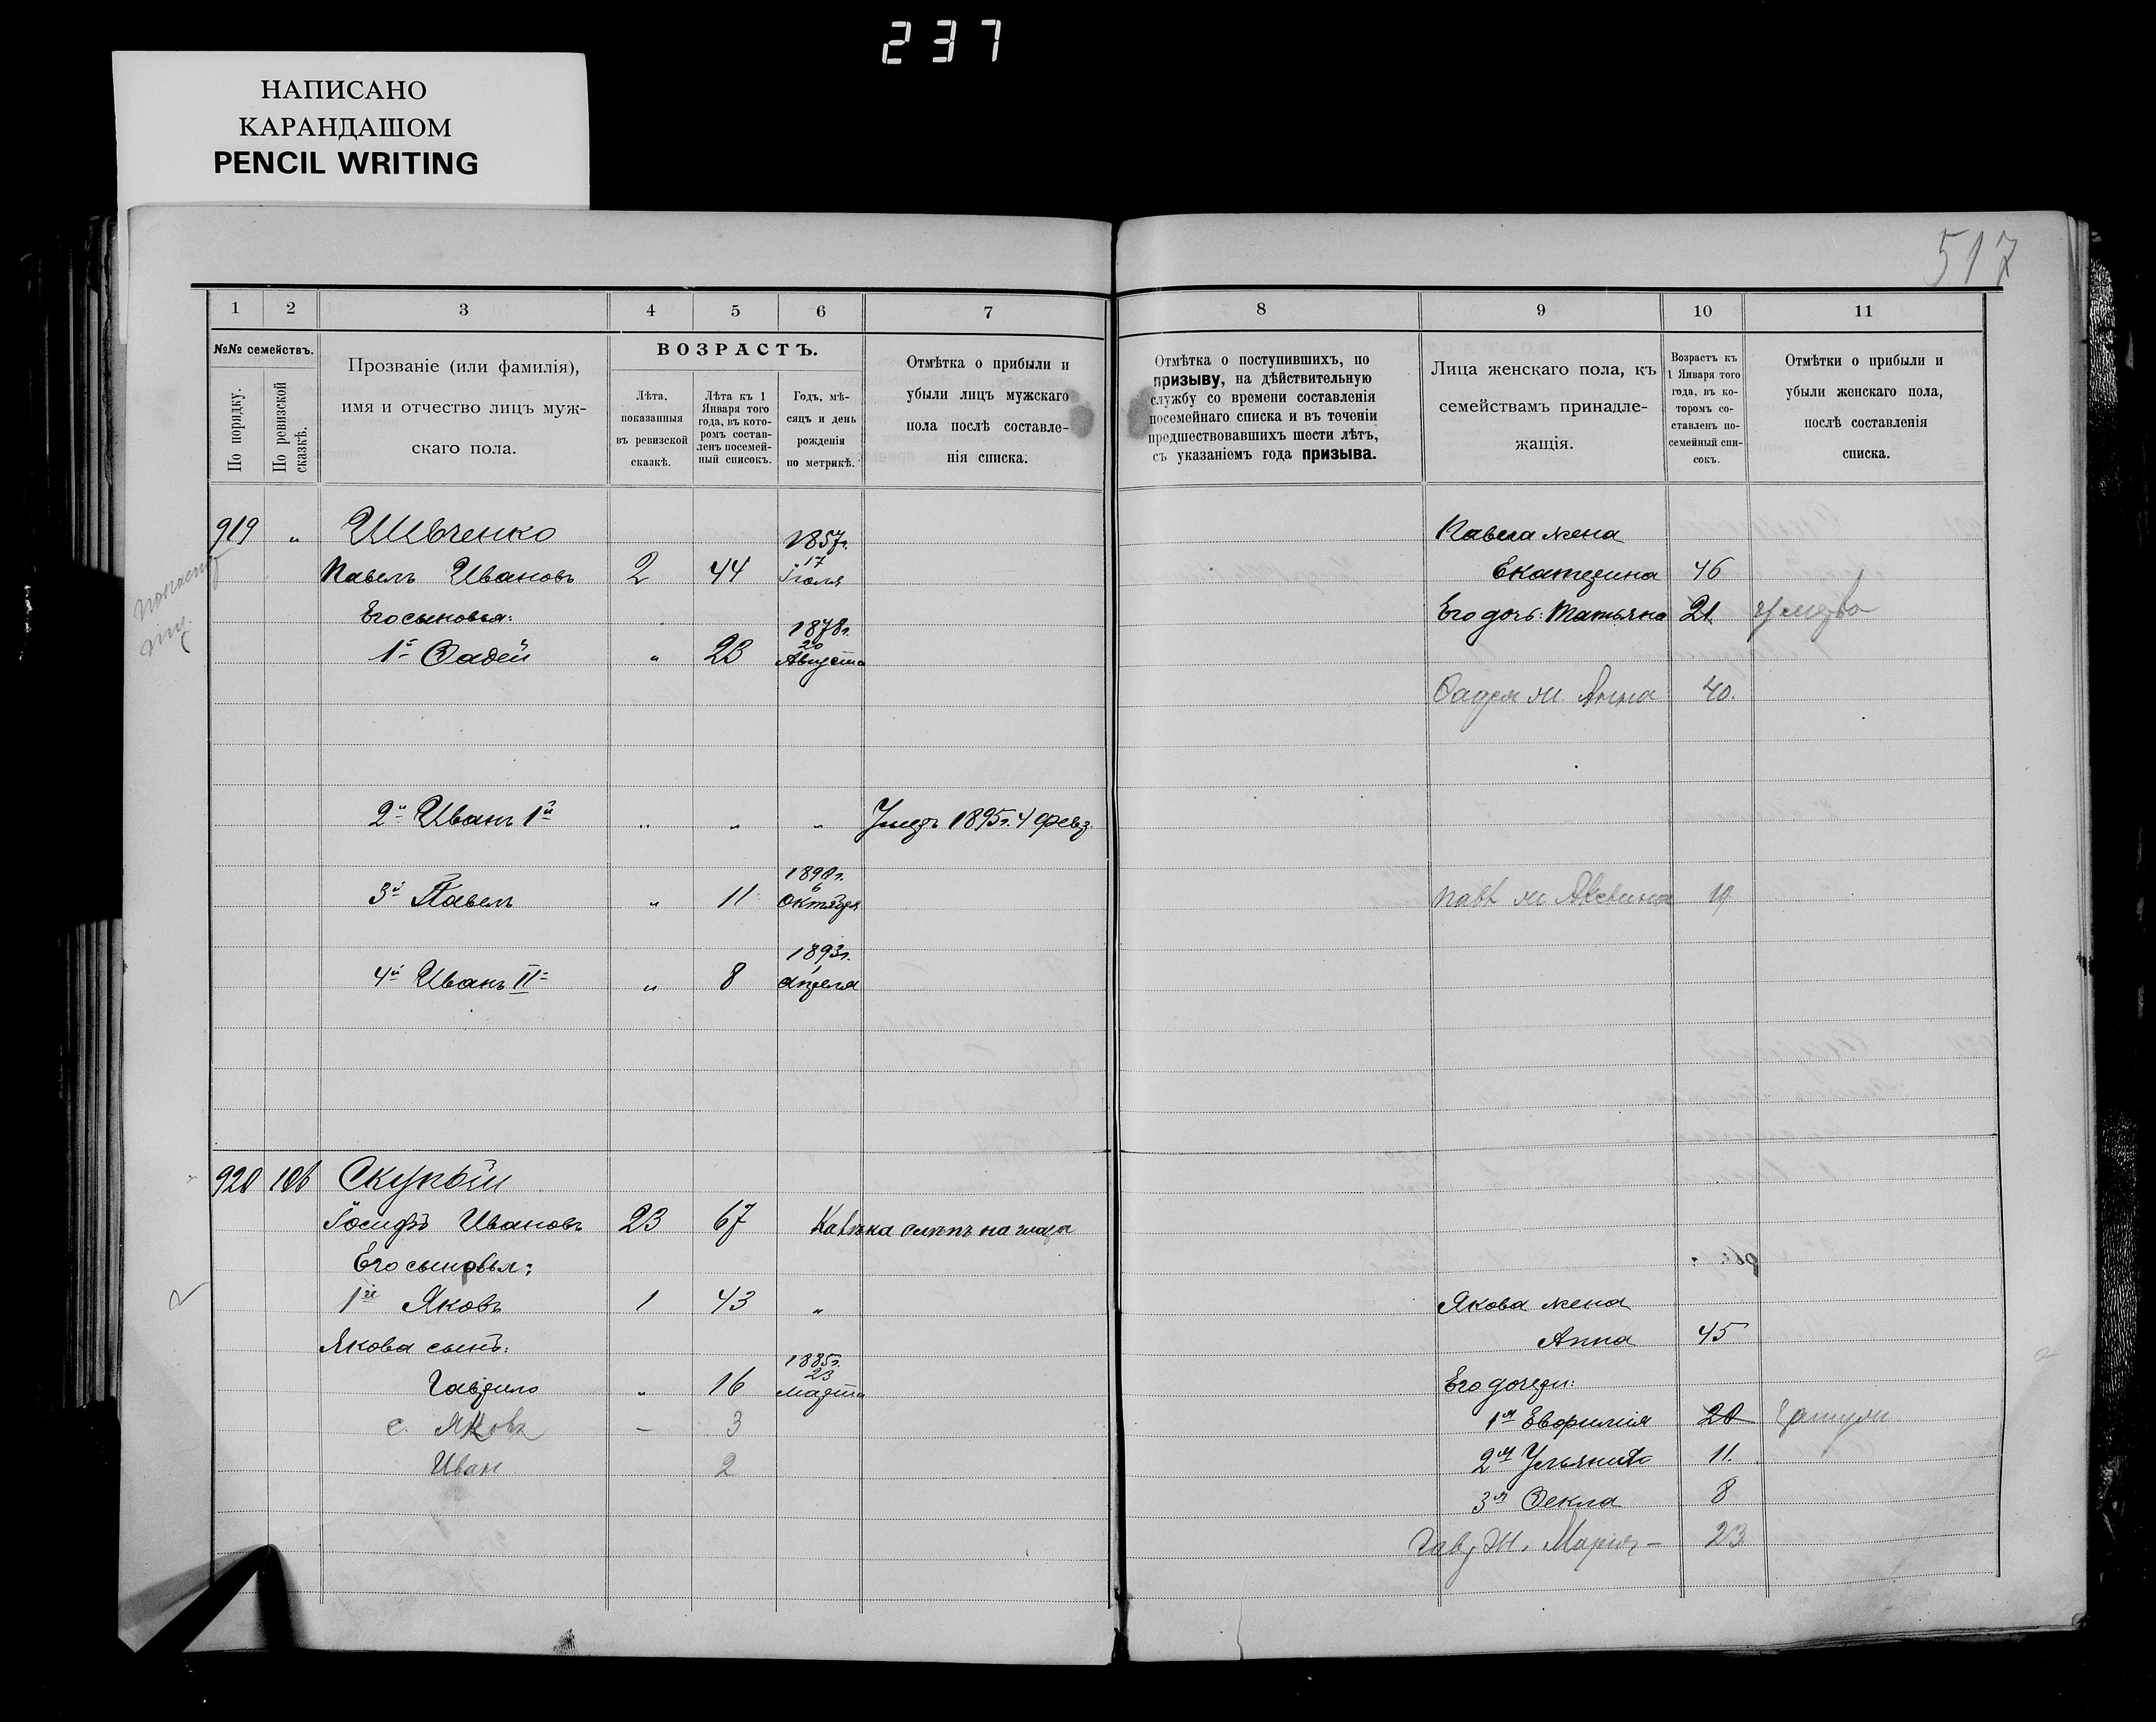 237
НАПИСАНО
КАРАНДАШОМ
PENCIL WRITING
517
1 2 3 4 5 6 7 8 9 10 11
№№ семействъ.
По порядку.
По ревизской сказкѣ.
Прозваніе (или фамилія),
имя и отчество лицъ муж-
скаго пола.
ВОЗРАСТЪ.
Лѣта,
показанныя
въ ревизской
сказкѣ.
Лѣта къ 1
Января того
года, въ кото-
ромъ состав-
ленъ посемей-
ный списокъ.
Годъ, мѣ-
сяцъ и день
рожденія
по метрикѣ.
Отмѣтка о прибыли и
убыли лицъ мужскаго
пола послѣ составле-
нія списка.
Отмѣтка о поступившихъ, по
призыву, на дѣйствительную
службу со времени составленія
посемейнаго списка и въ теченіи
предшествовавшихъ шести лѣтъ,
съ указаніемъ года призыва.
Лица женскаго пола, къ
семействамъ принадле-
жащія.
Возрастъ къ
1 Января того
года, въ ко-
торомъ со-
ставленъ по-
семейный спи-
сокъ.
Отмѣтки о прибыли и
убыли женскаго пола,
послѣ составленія
списка.
919 " Шевченко 1857г. Павела жена
Павелъ Ивановъ 2 44 17 Іюля Екатерина 46
Его сыновья: 1878г. Его дочь: Татьяна 21
1й Фадей " 23 20 Августа
Фадея ж. Анна 40.
2й Иванъ 1й " " " Умеръ 1895г. 4 февр.
1890г.
3й Павелъ " 11 6 Октября 19
1893г.
4й Иванъ II " 8 1 Апреля
920 106 Скупой
Іосифъ Ивановъ 23 67 Калѣка слѣпъ на глаза
Его сыновья:
1й Яковъ 1 43 " Якова жена
Якова сынъ: Анна 45
1885г.
Гаврило " 16 23 Марта Его дочери:
с. Яковъ – 3 1я Евфимія 20
Иван 2 2я Ульяна 11.
3я Фекла 8
Гавр. Ж. Мария – 23